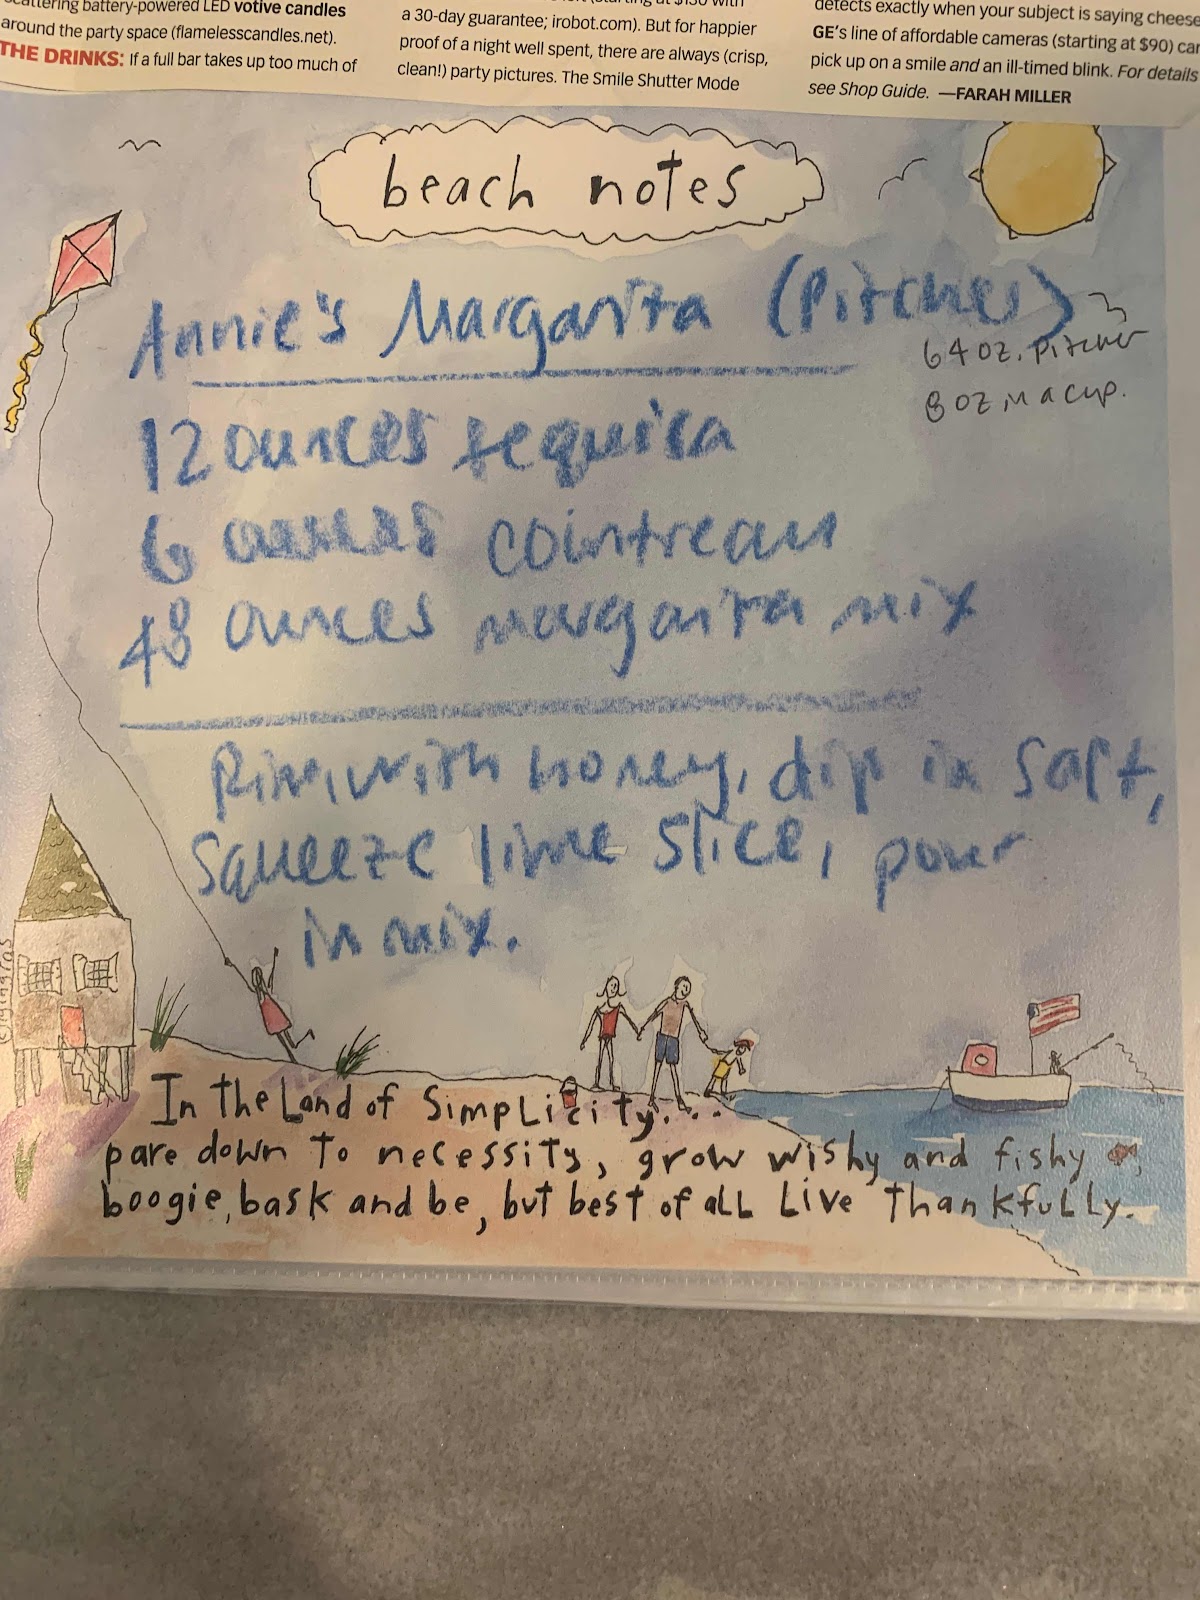 scattering battery-powered LED votive candles
around the party space (flamelesscandles.net).
THE DRINKS: If a full bar takes up too much of
a 30-day guarantee; irobot.com). But for happier
proof of a night well spent, there are always (crisp,
clean!) party pictures. The Smile Shutter Mode
detects exactly when your subject is saying cheese
GE's line of affordable cameras (starting at $90) can
pick up on a smile and an ill-timed blink. For details
see Shop Guide. —FARAH MILLER
beach notes
Annie's Margarita (Pitcher)
64 oz. pitcher
8 oz in a cup.
12 ounces tequila
6 ounces cointreau
48 ounces margarita mix
Rim with honey, dip in salt,
squeeze lime slice, pour
in mix.
In the Land of Simplicity...
pare down to necessity, grow wishy and fishy,
boogie, bask and be, but best of all Live Thankfully.